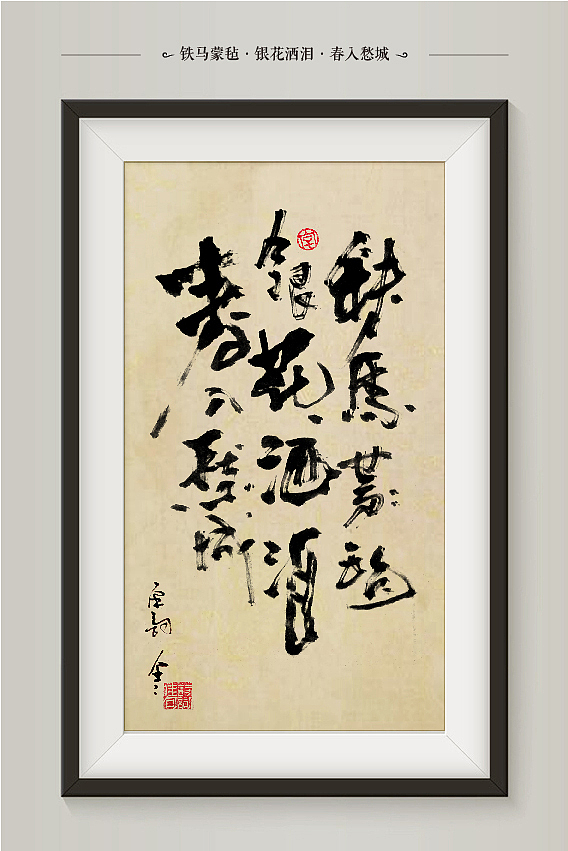 铁马蒙毡·银花洒泪·春入愁城
鐵馬蒙毡
銀花洒淚
春入愁城